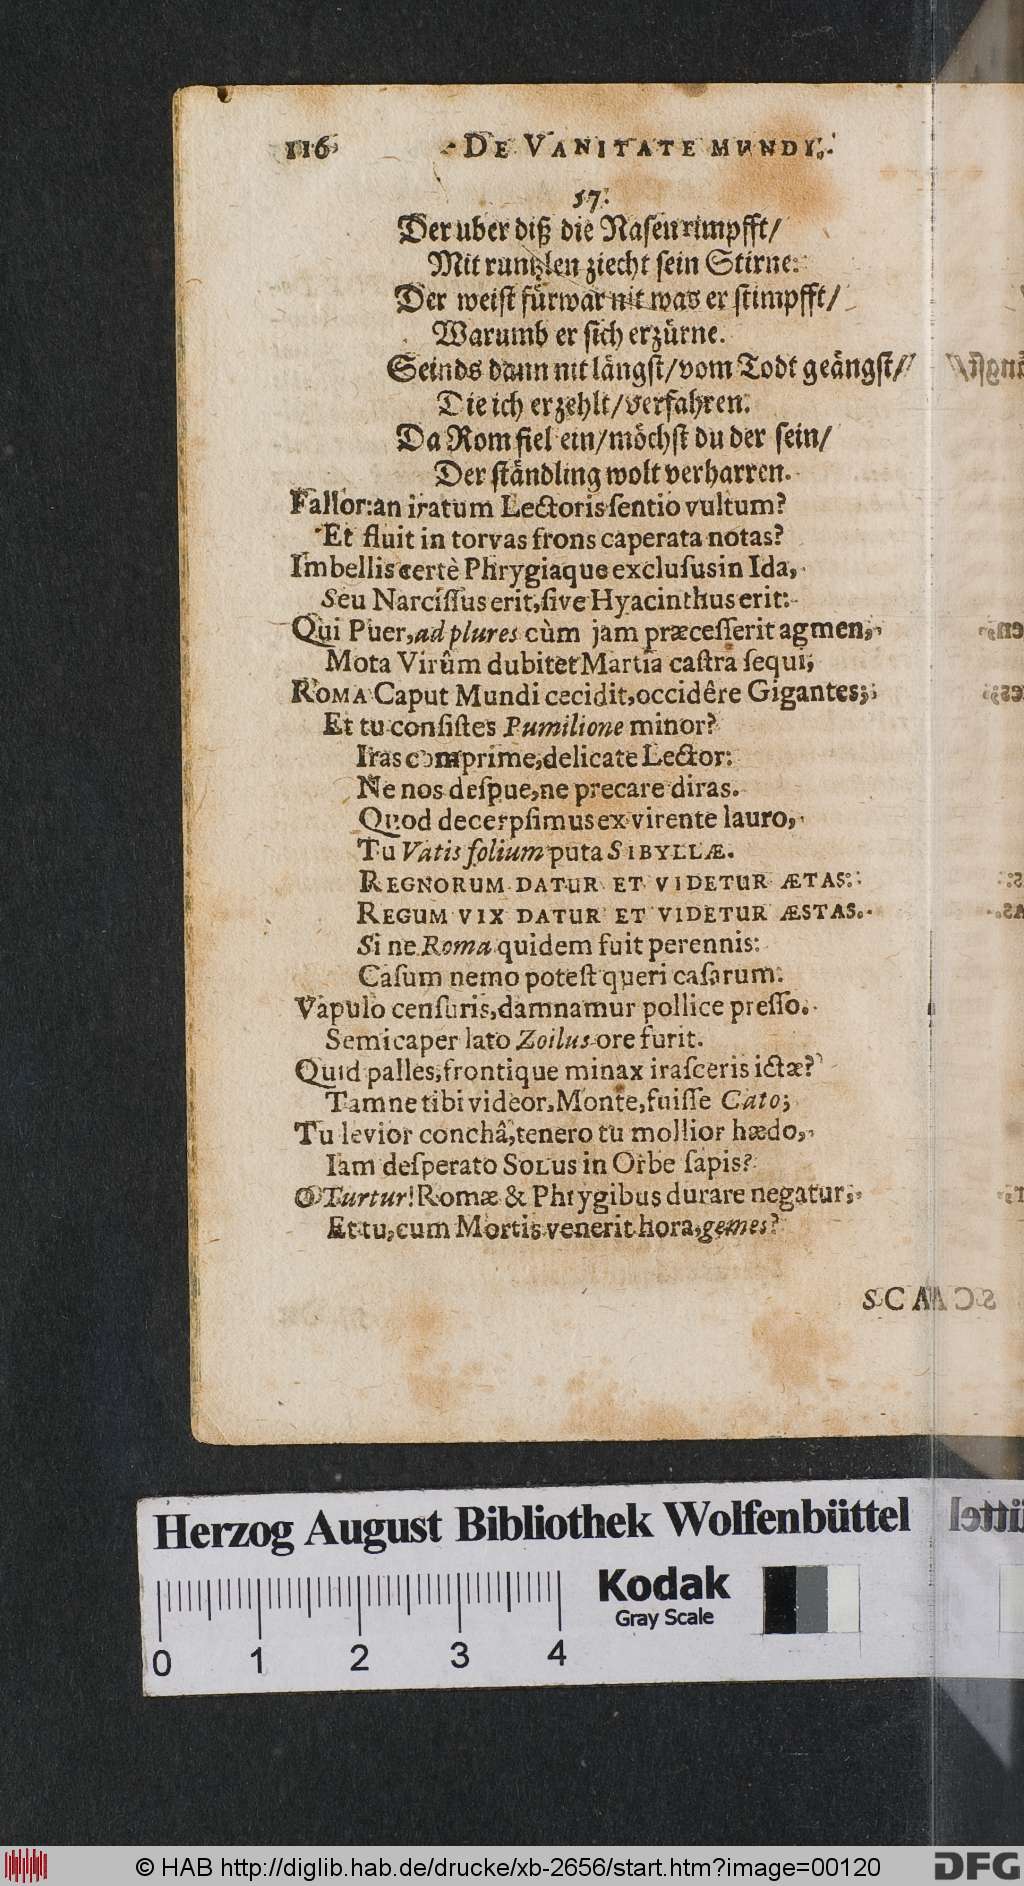 116 DE VANITATE MUNDI.
57.
Der uber diß die Nasen rimpfft/
Mit runtzlen ziecht sein Stirne:
Der weist fürwar nit was er stimpfft/
Warumb er sich erzürne.
Seinds dann nit längst/vom Todt geängst/
Die ich erzehlt/verfahren.
Da Rom fiel ein/möchst du der sein/
Der ständling wolt verharren.
Fallor:an iratum Lectoris ſentio vultum?
Et fluit in torvas frons caperata notas?
Imbellis certè Phrygiaque excluſus in Ida,
Seu Narciſſus erit,ſive Hyacinthus erit:
Qui Puer,ad plures cùm jam præceſſerit agmen,
Mota Virûm dubitet Martia caſtra ſequi;
ROMA Caput Mundi cecidit,occidêre Gigantes;
Et tu conſiſtes Pumilione minor?
Iras comprime,delicate Lector:
Ne nos deſpue,ne precare diras.
Quod decerpſimus ex virente lauro,
Tu Vatis folium puta SIBYLLÆ.
REGNORUM DATUR ET VIDETUR ÆTAS:
REGUM VIX DATUR ET VIDETUR ÆSTAS.
Si ne Roma quidem fuit perennis:
Caſum nemo poteſt queri caſarum.
Vapulo cenſuris,damnamur pollice preſſo.
Semicaper lato Zoilus ore furit.
Quid palles,frontique minax iraſceris ictæ?
Tamne tibi videor,Monte,fuiſſe Cato;
Tu levior conchâ,tenero tu mollior hædo,
Iam deſperato SOLUS in Orbe ſapis?
O Turtur!Romæ & Phrygibus durare negatur;
Et tu,cum Mortis venerit hora,gemes?
SCA
Herzog August Bibliothek Wolfenbüttel
Kodak
Gray Scale
0 1 2 3 4
© HAB http://diglib.hab.de/drucke/xb-2656/start.htm?image=00120
DFG